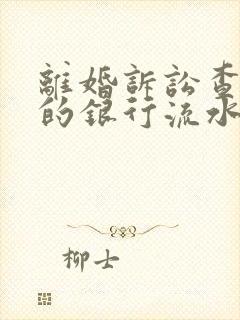 離婚訴訟查
的銀行流水
柳士